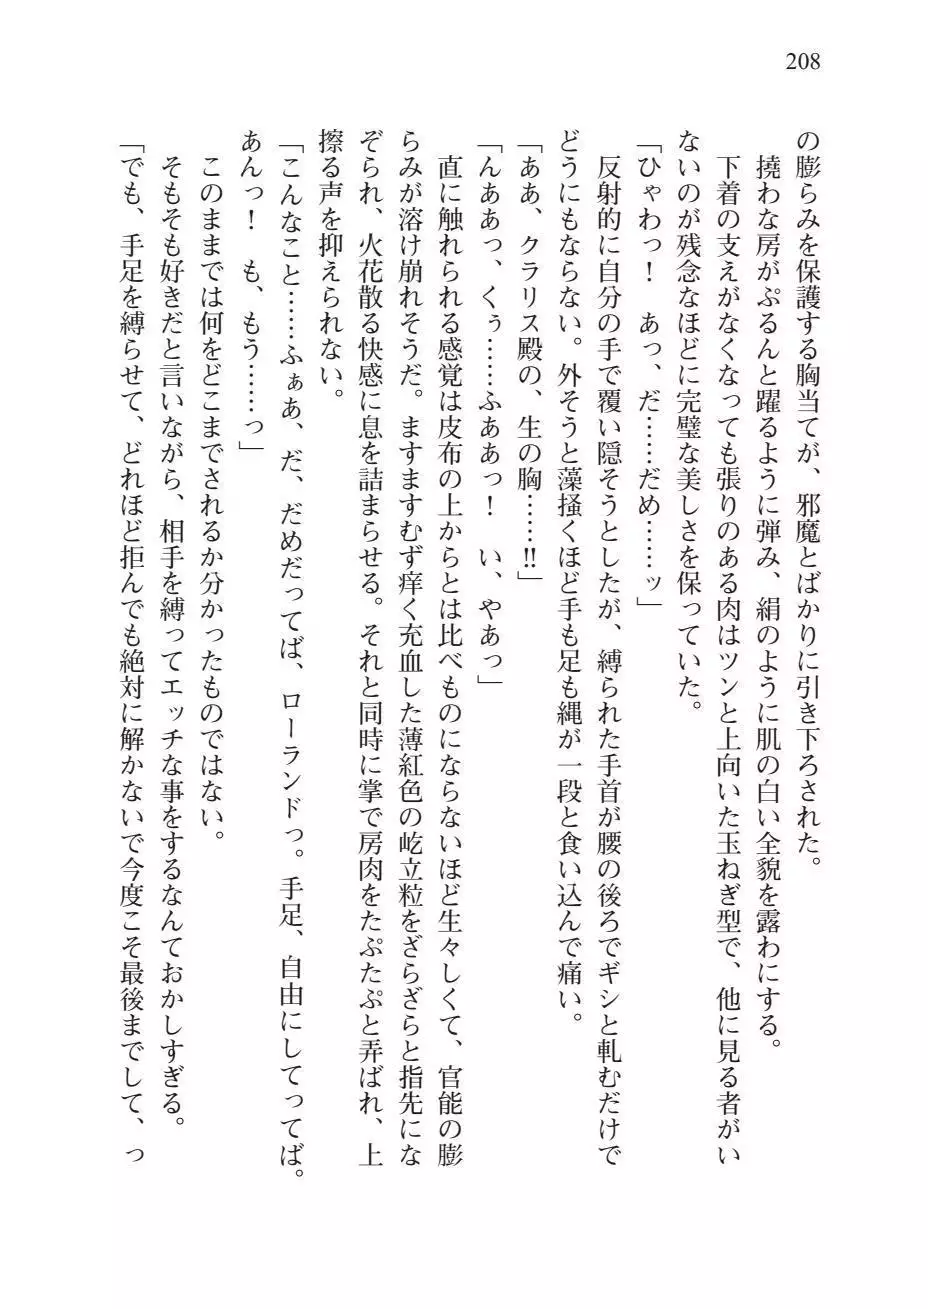 208
の膨らみを保護する胸当てが、邪魔とばかりに引き下ろされた。
撓わな房がぷるんと躍るように弾み、絹のように肌の白い全貌を露わにする。
下着の支えがなくなっても張りのある肉はツンと上向いた玉ねぎ型で、他に見る者がい
ないのが残念なほどに完璧な美しさを保っていた。
「ひゃわっ！　あっ、だ……だめ……ッ」
反射的に自分の手で覆い隠そうとしたが、縛られた手首が腰の後ろでギシと軋むだけで
どうにもならない。外そうと藻掻くほど手も足も縄が一段と食い込んで痛い。
「ああ、クラリス殿の、生の胸……‼」
「んああっ、くぅ……ふああっ！　い、やあっ」
直に触れられる感覚は皮布の上からとは比べものにならないほど生々しくて、官能の膨
らみが溶け崩れそうだ。ますますむず痒く充血した薄紅色の屹立粒をざらざらと指先にな
ぞられ、火花散る快感に息を詰まらせる。それと同時に掌で房肉をたぷたぷと弄ばれ、上
擦る声を抑えられない。
「こんなこと……ふぁあ、だ、だめだってば、ローランドっ。手足、自由にしてってば。
あんっ！　も、もう……っ」
このままでは何をどこまでされるか分かったものではない。
そもそも好きだと言いながら、相手を縛ってエッチな事をするなんておかしすぎる。
「でも、手足を縛らせて、どれほど拒んでも絶対に解かないで今度こそ最後までして、っ